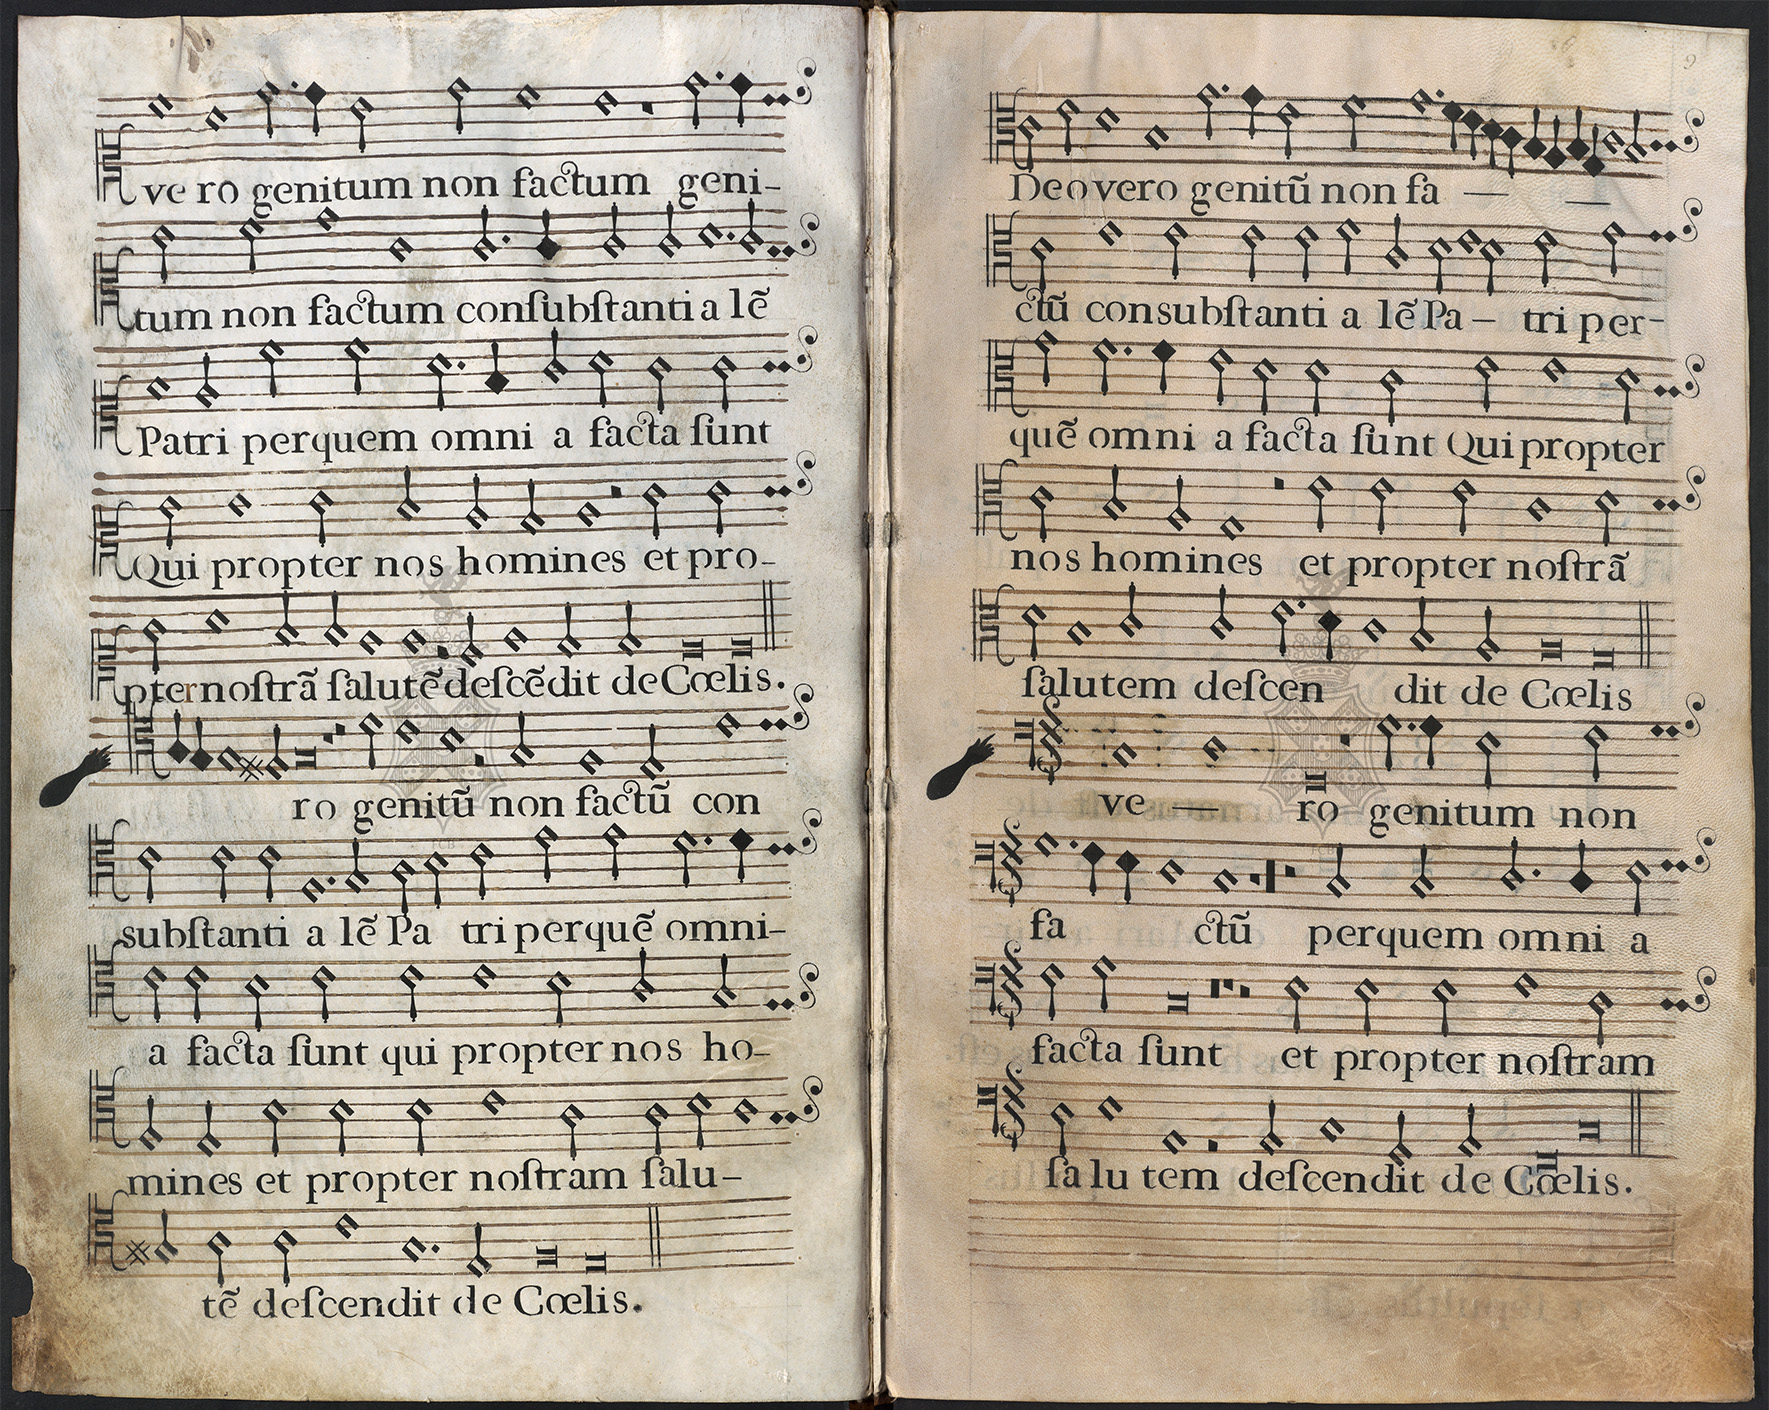 ve ro genitum non factum geni-
tum non factum conſubſtanti a lẽ
Patri perquem omni a facta ſunt
Qui propter nos homines et pro-
pter noſtrã ſalutẽ deſcẽdit de Cœlis.
ro genitũ non factũ con
subſtanti a lẽ Pa tri per quẽ omni-
a facta ſunt qui propter nos ho-
mines et propter noſtram ſalu-
tẽ deſcendit de Cœlis.
Deo vero genitũ non fa — —
ctũ consubſtanti a lẽ Pa - tri per-
quẽ omni a facta ſunt Qui propter
nos homines et propter noſtrã
ſalutem deſcen dit de Cœlis
ve — ro genitum non
fa ctũ perquem omni a
facta ſunt et propter noſtram
ſa lu tem deſcendit de Cœlis.